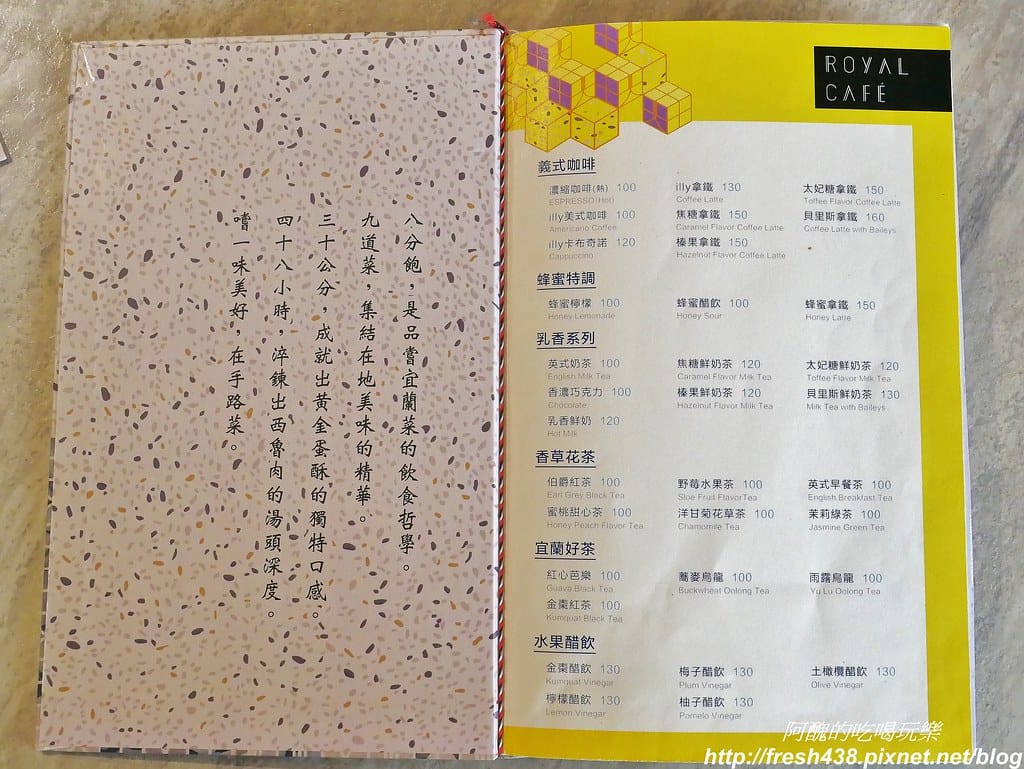 八分飽，是品嘗宜蘭菜的飲食哲學。
九道菜，集結在地美味的精華。
三十公分，成就出黃金蛋酥的獨特口感。
四十八小時，淬鍊出西魯肉的湯頭深度。
嚐一味美好，在手路菜。
ROYAL
CAFÉ
義式咖啡
濃縮咖啡(熱) 100
ESPRESSO(Hot)
illy拿鐵 130
Coffee Latte
太妃糖拿鐵 150
Toffee Flavor Coffee Latte
illy美式咖啡 100
Americano Coffee
焦糖拿鐵 150
Caramel Flavor Coffee Latte
貝里斯拿鐵 160
Coffee Latte with Baileys
illy卡布奇諾 120
Cappuccino
榛果拿鐵 150
Hazelnut Flavor Coffee Latte
蜂蜜特調
蜂蜜檸檬 100
Honey Lemonade
蜂蜜醋飲 100
Honey Sour
蜂蜜拿鐵 150
Honey Latte
乳香系列
英式奶茶 100
English Milk Tea
焦糖鮮奶茶 120
Caramel Flavor Milk Tea
太妃糖鮮奶茶 120
Toffee Flavor Milk Tea
香濃巧克力 100
Chocolate
榛果鮮奶茶 120
Hazelnut Flavor Milk Tea
貝里斯鮮奶茶 130
Milk Tea with Baileys
乳香鮮奶 120
Hot Milk
香草花茶
伯爵紅茶 100
Earl Grey Black Tea
野莓水果茶 100
Sloe Fruit FlavorTea
英式早餐茶 100
English Breakfast Tea
蜜桃甜心茶 100
Honey Peach Flavor Tea
洋甘菊花草茶 100
Chamomile Tea
茉莉綠茶 100
Jasmine Green Tea
宜蘭好茶
紅心芭樂 100
Guava Black Tea
蕎麥烏龍 100
Buckwheat Oolong Tea
雨露烏龍 100
Yu Lu Oolong Tea
金棗紅茶 100
Kumquat Black Tea
水果醋飲
金棗醋飲 130
Kumquat Vinegar
梅子醋飲 130
Plum Vinegar
土橄欖醋飲 130
Olive Vinegar
檸檬醋飲 130
Lemon Vinegar
柚子醋飲 130
Pomelo Vinegar
阿醜的吃喝玩樂
http://fresh438.pixnet.net/blog